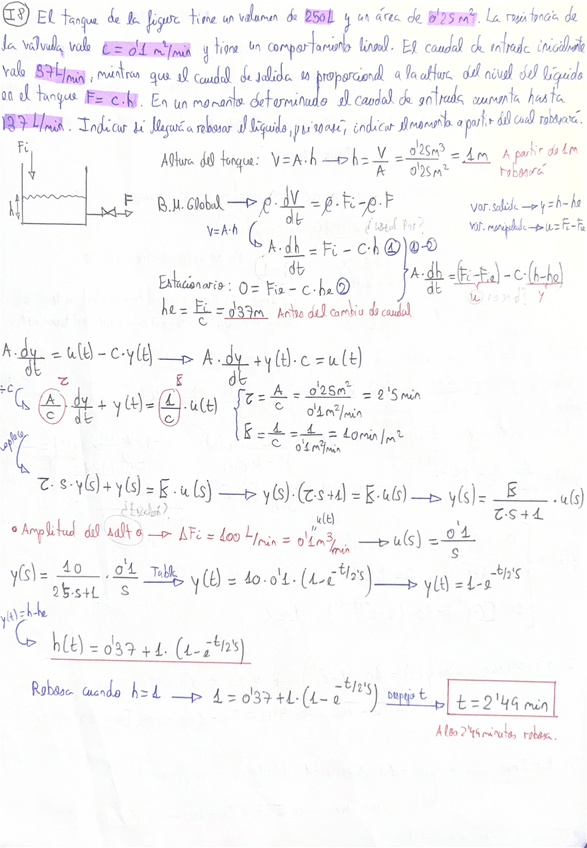 I8 El tanque de la figura tiene un volumen de 250L y un área de 0'25 m². La resistencia de
la válvula vale C = 0'1 m²/min y tiene un comportamiento lineal. El caudal de entrada inicialmente
vale 37L/min, mientras que el caudal de salida es proporcional a la altura del nivel del líquido
en el tanque F = c·h. En un momento determinado el caudal de entrada aumenta hasta
137 L/min. Indicar si llegará a rebosar el líquido, y si es así, indicar el momento a partir del cual rebosará.
Fi
h
F
Altura del tanque: V=A·h → h = V/A = 0'25m³/0'25m² = 1m A partir de 1m rebosará
B.M. Global → ρ·dV/dt = ρ·Fi - ρ·F
V=A·h
var. salida → y = h-he
var. manipulada → u = Fi-Fie
A·dh/dt = Fi - C·h ①
①-②
A·dh/dt = (Fi-Fie) - C·(h-he)
u y
Estacionario: 0 = Fie - C·he ②
he = Fi/C = 0'37m Antes del cambio de caudal
A·dy/dt = u(t) - C·y(t) → A·dy/dt + y(t)·C = u(t)
÷C τ K
A/C · dy/dt + y(t) = 1/C · u(t)
τ = A/C = 0'25m²/0'1m²/min = 2'5 min
K = 1/C = 1/0'1m²/min = 10 min/m²
τ·s·y(s) + y(s) = K·u(s) → y(s)·(τ·s+1) = K·u(s) → y(s) = K/τ·s+1 · u(s)
¿Escalón?
Amplitud del salto → ΔFi = 100 L/min = 0'1 m³/min → u(s) = 0'1/s
u(t)
y(s) = 10/2'5·s+1 · 0'1/s Tabla → y(t) = 10·0'1·(1-e^-t/2'5) → y(t) = 1-e^-t/2'5
y(t)=h-he
h(t) = 0'37 + 1·(1-e^-t/2'5)
Rebosa cuando h=1 → 1 = 0'37+1·(1-e^-t/2'5) despejo t → t = 2'49 min
A los 2'49 minutos rebosa.